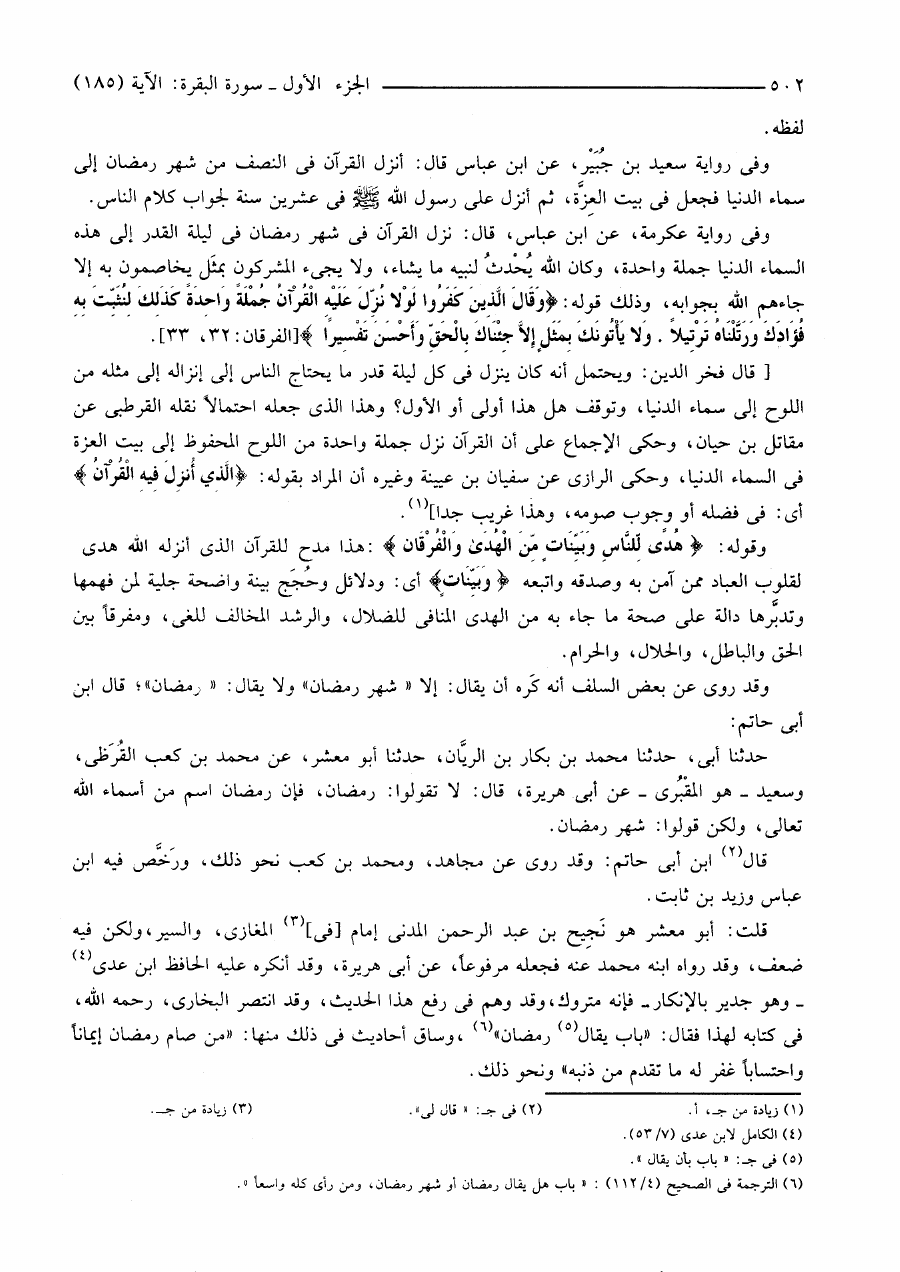 ٥٠٢ ــــــــــــــــــــ الجزء الأول ـ سورة البقرة: الآية (١٨٥)
لفظه.
وفى رواية سعيد بن جُبَيْر، عن ابن عباس قال: أنزل القرآن فى النصف من شهر رمضان إلى
سماء الدنيا فجعل فى بيت العِزَّة، ثم أنزل على رسول الله ﷺ فى عشرين سنة لجواب كلام الناس.
وفى رواية عكرمة، عن ابن عباس، قال: نزل القرآن فى شهر رمضان فى ليلة القدر إلى هذه
السماء الدنيا جملة واحدة، وكان الله يُحْدثُ لنبيه ما يشاء، ولا يجىء المشركون بمثَل يخاصمون به إلا
جاءهم الله بجوابه، وذلك قوله: ﴿وَقَالَ الَّذِينَ كَفَرُوا لَوْلا نُزِّلَ عَلَيْهِ الْقُرْآنُ جُمْلَةً وَاحِدَةً كَذَلِكَ لِنُثَبِّتَ بِهِ
فُؤَادَكَ وَرَتَّلْنَاهُ تَرْتِيلاً . وَلا يَأْتُونَكَ بِمَثَلٍ إِلاَّ جِئْنَاكَ بِالْحَقِّ وَأَحْسَنَ تَفْسِيراً ﴾[الفرقان:٣٢، ٣٣].
[ قال فخر الدين: ويحتمل أنه كان ينزل فى كل ليلة قدر ما يحتاج الناس إلى إنزاله إلى مثله من
اللوح إلى سماء الدنيا، وتوقف هل هذا أولى أو الأول؟ وهذا الذى جعله احتمالاً نقله القرطبى عن
مقاتل بن حيان، وحكى الإجماع على أن القرآن نزل جملة واحدة من اللوح المحفوظ إلى بيت العزة
فى السماء الدنيا، وحكى الرازى عن سفيان بن عيينة وغيره أن المراد بقوله: ﴿الَّذِي أُنزِلَ فِيهِ الْقُرْآنُ ﴾
أى: فى فضله أو وجوب صومه، وهذا غريب جدا](١).
وقوله: ﴿ هُدًى لِّلنَّاسِ وَبَيِّنَاتٍ مِّنَ الْهُدَىٰ وَالْفُرْقَانِ ﴾ :هذا مدح للقرآن الذى أنزله الله هدى
لقلوب العباد ممن آمن به وصدقه واتبعه ﴿ وَبَيِّنَاتٍ﴾ أى: ودلائل وحُجَج بينة واضحة جلية لمن فهمها
وتدبَّرها دالة على صحة ما جاء به من الهدى المنافى للضلال، والرشد المخالف للغى، ومفرقاً بين
الحق والباطل، والحلال، والحرام.
وقد روى عن بعض السلف أنه كَره أن يقال: إلا « شهر رمضان» ولا يقال: « رمضان»؛ قال ابن
أبى حاتم:
حدثنا أبى، حدثنا محمد بن بكار بن الريَّان، حدثنا أبو معشر، عن محمد بن كعب القُرَظى،
وسعيد ـ هو المقْبُرى ـ عن أبى هريرة، قال: لا تقولوا: رمضان، فإن رمضان اسم من أسماء الله
تعالى، ولكن قولوا: شهر رمضان.
قال(٢) ابن أبى حاتم: وقد روى عن مجاهد، ومحمد بن كعب نحو ذلك، ورَخَّص فيه ابن
عباس وزيد بن ثابت.
قلت: أبو معشر هو نَجِيح بن عبد الرحمن المدنى إمام [فى](٣) المغازى، والسير،ولكن فيه
ضعف، وقد رواه ابنه محمد عنه فجعله مرفوعاً، عن أبى هريرة، وقد أنكره عليه الحافظ ابن عدى(٤)
ـ وهو جدير بالإنكار ـ فإنه متروك،وقد وهم فى رفع هذا الحديث، وقد انتصر البخارى، رحمه الله،
فى كتابه لهذا فقال: «باب يقال(٥) رمضان»(٦) ،وساق أحاديث فى ذلك منها: «من صام رمضان إيماناً
واحتساباً غفر له ما تقدم من ذنبه» ونحو ذلك.
(١) زيادة من جـ، أ. (٢) فى جـ: « قال لى». (٣) زيادة من جـ.
(٤) الكامل لابن عدى (٥٣/٧).
(٥) فى جـ: « باب بأن يقال ».
(٦) الترجمة فى الصحيح (١١٢/٤) : « باب هل يقال رمضان أو شهر رمضان، ومن رأى كله واسعاً ».